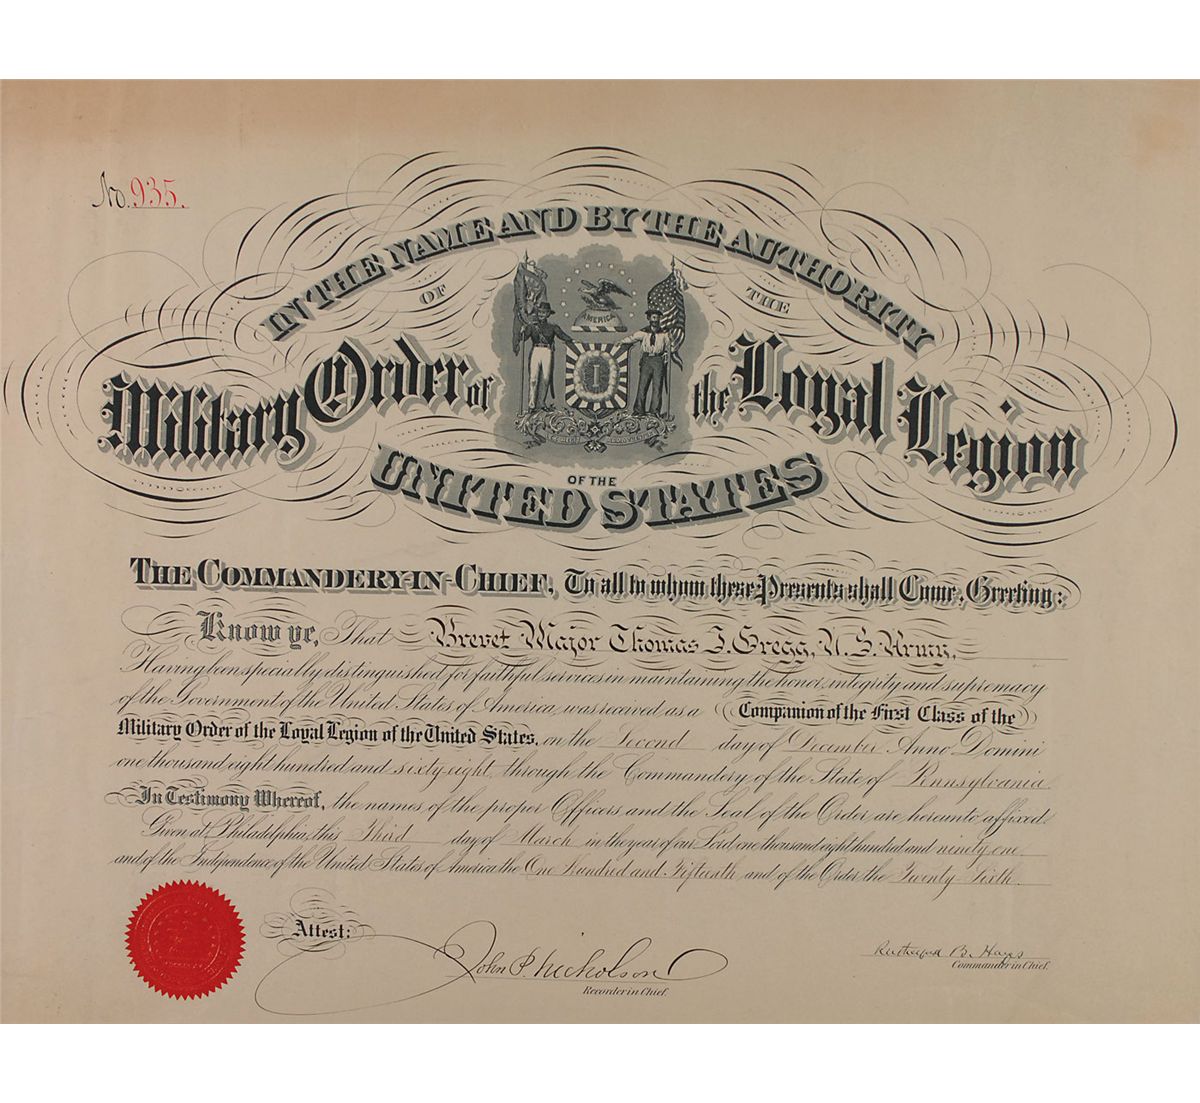 No. 935.
IN THE NAME AND BY THE AUTHORITY
OF THE
AMERICA
Military Order of the Loyal Legion
OF THE
UNITED STATES
THE COMMANDERY-IN-CHIEF, To all to whom these Presents shall Come, Greeting:
Know ye, That Brevet Major Thomas J. Gregg, U.S. Army,
Having been specially distinguished for faithful services in maintaining the honor, integrity and supremacy
of the Government of the United States of America, was received as a Companion of the First Class of the
Military Order of the Loyal Legion of the United States, on the Second day of December Anno Domini
one thousand, eight hundred and sixty eight, through the Commandery of the State of Pennsylvania.
In Testimony Whereof, the names of the proper Officers and the Seal of the Order are hereunto affixed.
Given at Philadelphia, this Third day of March in the year of our Lord one thousand, eight hundred and ninety one
and of the Independence of the United States of America the One Hundred and Fifteenth and of the Order the Twenty Sixth.
Attest:
John P. Nicholson
Recorder in Chief.
Rutherford B. Hayes
Commander in Chief.